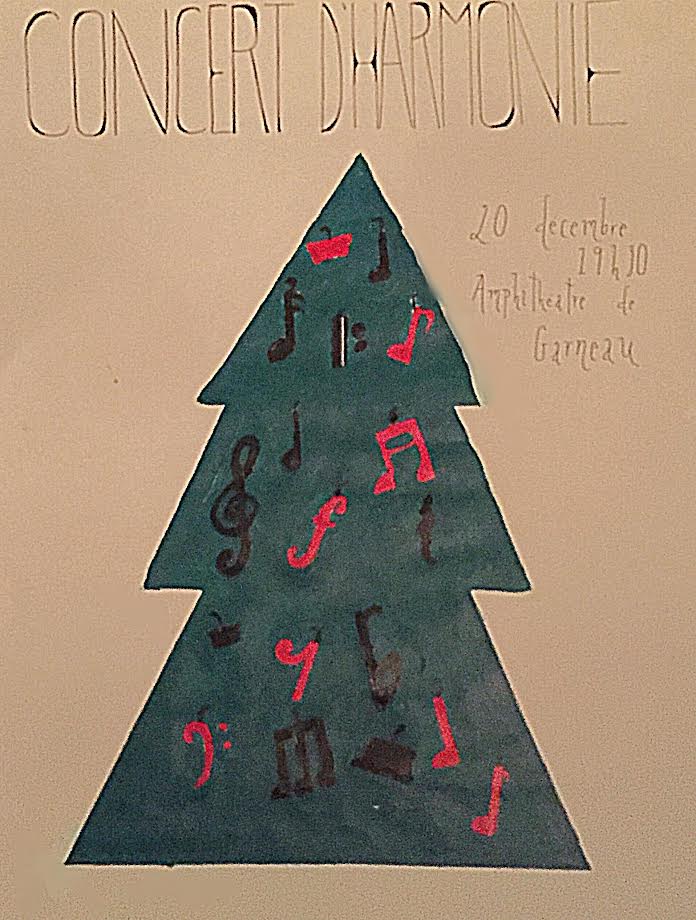 CONCERT D'HARMONIE
20 decembre
19h30
Amphitheatre de
Garneau